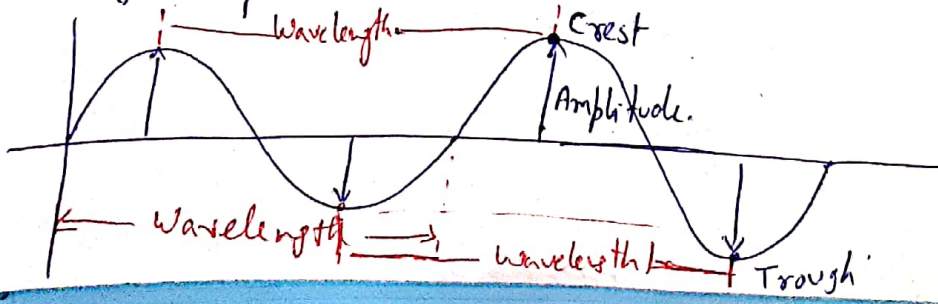 Wavelength
Crest
Amplitude.
Wavelength
wavelength
Trough